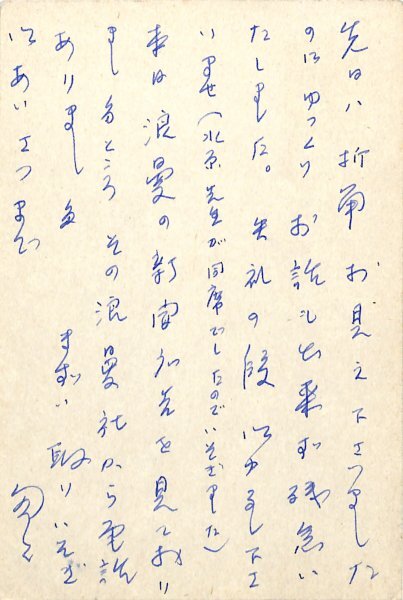 先日ハ折角お見え下さいました
のにゆっくりお話も出来ず残念い
たしました。失礼の段御ゆるし下さ
いませ(水原先生が同席でしたのでいそぎました)
本日浪曼の新聞広告を見ており
ましたところその浪曼社から電話
ありました まずは取りいそぎ
御あいさつまで 匆々